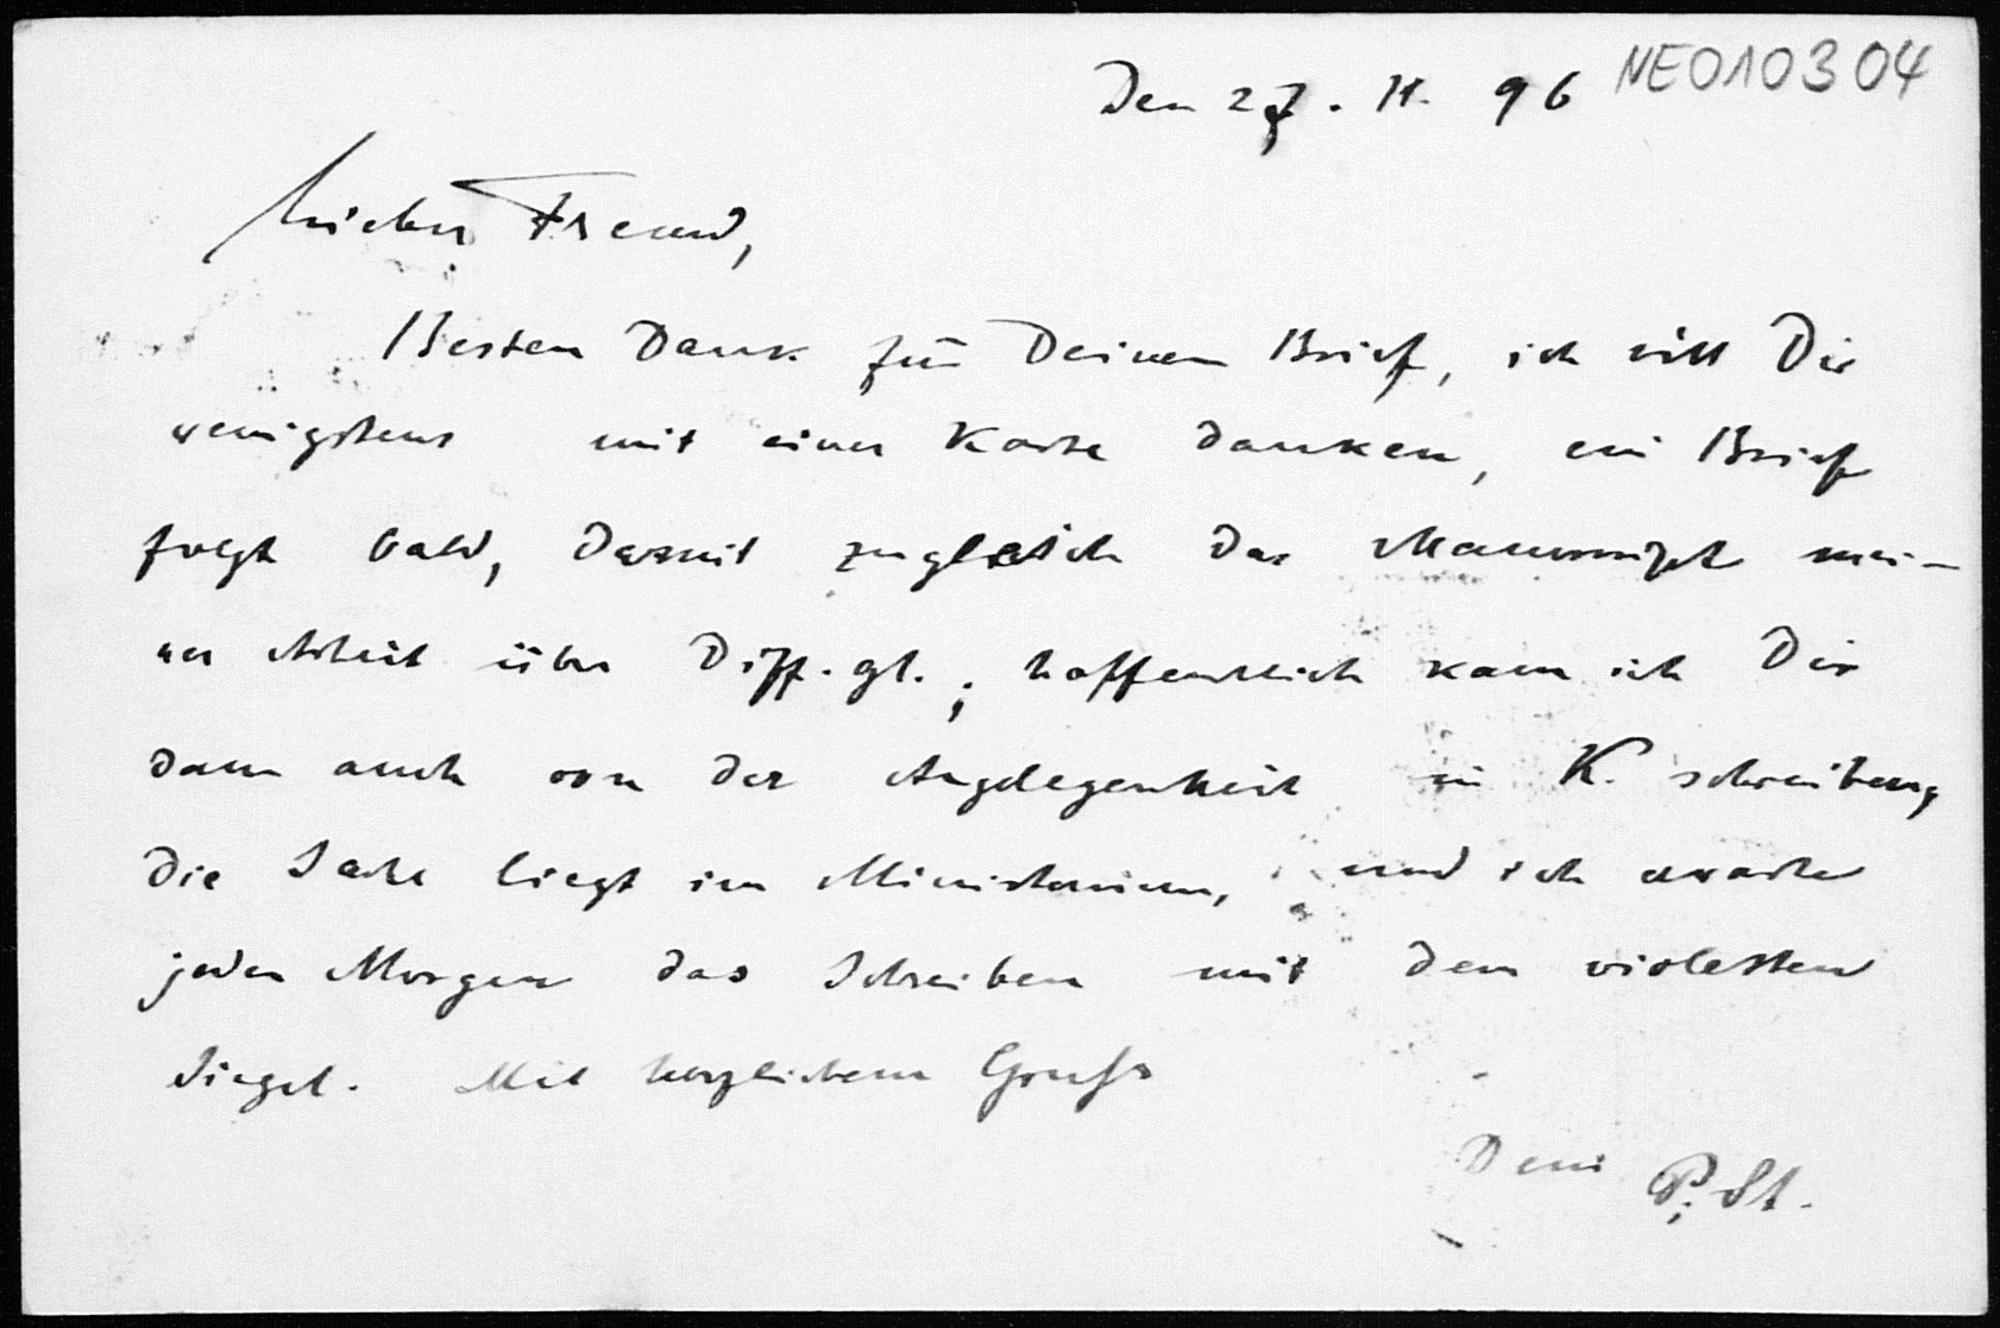 Den 27. 11. 96 NEO10304
Lieber Freund,
Besten Dank für Deinen Brief, ich will Dir
wenigstens mit einer Karte danken, ein Brief
folgt bald, damit zugleich das Manuscript mei-
ner Arbeit über Diff. gl.; hoffentlich kann ich Dir
dann auch von der Angelegenheit in K. schreiben,
die Sache liegt im Ministerium, und ich erwarte
jeden Morgen das Schreiben mit dem violetten
Siegel. Mit herzlichem Gruss
Dein P. St.